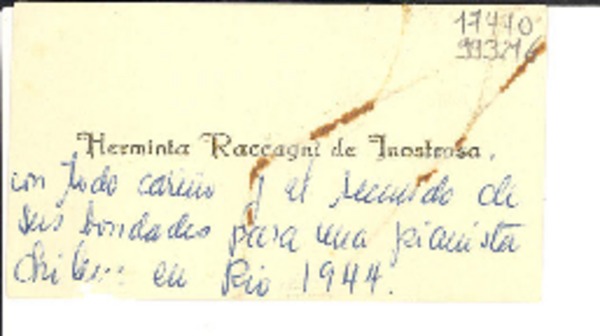 17440
993216
Herminta Raccagni de Inostrosa,
con todo cariño y el recuerdo de
sus bondades para una pianista
chilena en Rio 1944.